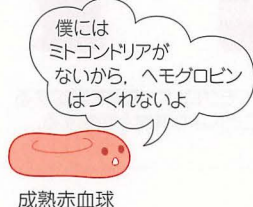 僕には
ミトコンドリアが
ないから，ヘモグロビン
はつくれないよ
成熟赤血球